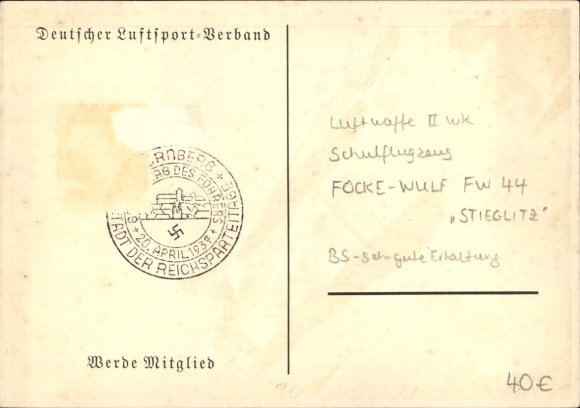 Deutscher Luftsport=Verband
NÜRNBERG
TAG DES FÜHRERS
20. APRIL 1937
STADT DER REICHSPARTEITAGE
Werde Mitglied
Luftwaffe II WK
Schulflugzeug
FOCKE-WULF FW 44
„STIEGLITZ"
BS-Sehr gute Erhaltung
40€